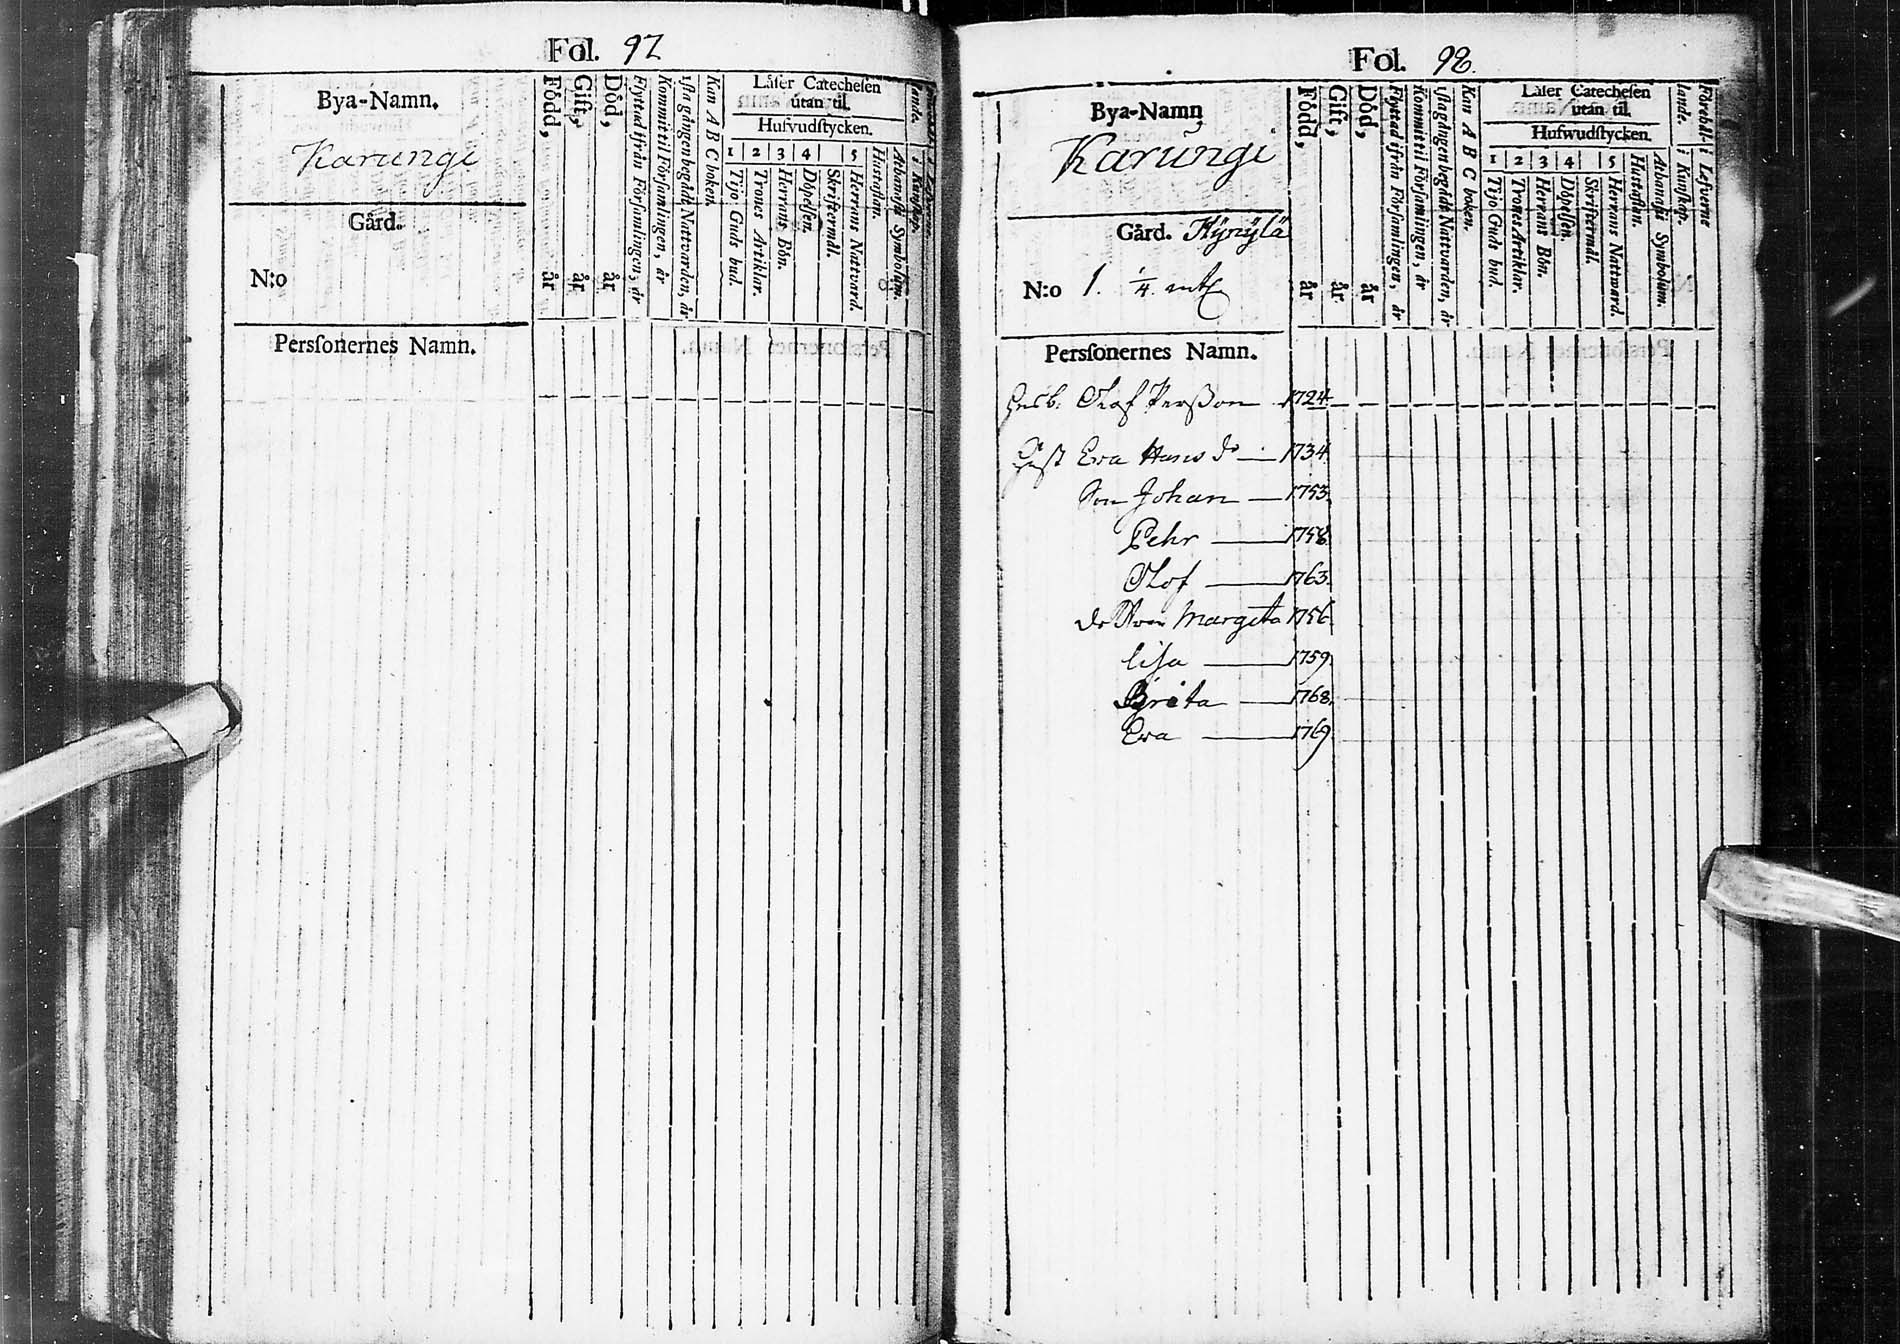 Fol. 97
Bya-Namn.
Karungi
Gård.
N:o
Persſonernes Namn.
Född, år
Gift, år
Död, år
Flyttad ifrån Församlingen, år
Kommit til Församlingen, år
1sta gången begådt Nattvarden, år
Kan A B C boken.
Läser Catecheſen
utan til.
Hufvudſtycken.
1 2 3 4 5
Tijo Guds bud.
Trones Artiklar.
Herrans Bön.
Döpelſen.
Skriftermål.
Herrans Nattvard.
Huſtaflan.
Athanaſii Symbolum.
Fol. 98.
Bya-Namn
Karungi
Gård. Kÿrÿlä
N:o 1. 1/4. mtl
Persſonernes Namn.
Född, år
Gift, år
Död, år
Flyttad ifrån Församlingen, år
Kommit til Församlingen, år
1sta gången begådt Nattvarden, år
Kan A B C boken.
Läſer Catecheſen
utan til.
Hufwudſtycken.
1 2 3 4 5
Tijo Guds bud.
Trones Artiklar.
Herrans Bön.
Döpelſen.
Skriftermål.
Herrans Nattward.
Huſtaflan.
Athanaſii Symbolum.
Förehål-
lande.
i Kunſkap.
i Lefverne
Husb. Olof Perßon 1724
Hust Eva Hans dr 1734
Son Johan 1753
Pehr 1758
Olof 1763
dottren Margeta 1756
Lisa 1759
Brita 1768
Eva 1769